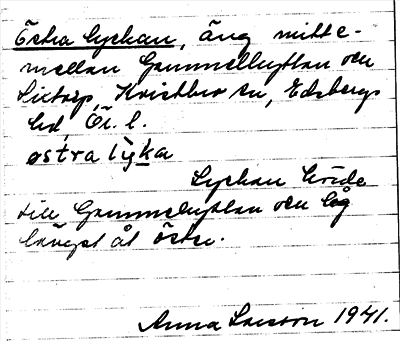 Östra lyckan, äng mitte-
mellan Gammelhyttan och
Sixtorp, Knista sn, Edsbergs
hd, Ör. l.
østra lyka
Lyckan hörde
till Gammelhyttan och låg
längst åt öster.
Anna Larsson 1941.